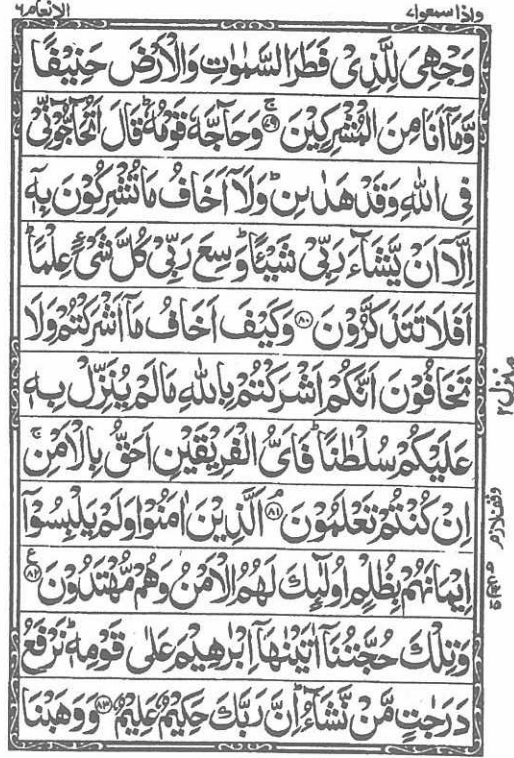 واذا سمعوا ۷ الانعام ۶
وَجْهِيَ لِلَّذِىْ فَطَرَ السَّمٰوٰتِ وَالْاَرْضَ حَنِيْفًا
وَّمَآ اَنَا مِنَ الْمُشْرِكِيْنَ ۚ‏﴿۷۹﴾ وَحَآجَّهٗ قَوْمُهٗ ؕ قَالَ اَتُحَآجُّوْٓنِّىْ
فِى اللّٰهِ وَقَدْ هَدٰٮنِ ؕ وَلَآ اَخَافُ مَا تُشْرِكُوْنَ بِهٖۤ
اِلَّآ اَنْ يَّشَآءَ رَبِّىْ شَيْـًٔا ؕ وَسِعَ رَبِّىْ كُلَّ شَىْءٍ عِلْمًا ؕ
اَفَلَا تَتَذَكَّرُوْنَ ﴿۸۰﴾ وَكَيْفَ اَخَافُ مَآ اَشْرَكْتُمْ وَلَا
تَخَافُوْنَ اَنَّكُمْ اَشْرَكْتُمْ بِاللّٰهِ مَا لَمْ يُنَزِّلْ بِهٖ
عَلَيْكُمْ سُلْطٰنًا ؕ فَاَىُّ الْفَرِيْقَيْنِ اَحَقُّ بِالْاَمْنِ ۚ
اِنْ كُنْتُمْ تَعْلَمُوْنَ ۘ‏﴿۸۱﴾ اَلَّذِيْنَ اٰمَنُوْا وَلَمْ يَلْبِسُوْۤا
اِيْمَانَهُمْ بِظُلْمٍ اُولٰٓئِكَ لَهُمُ الْاَمْنُ وَهُمْ مُّهْتَدُوْنَ ﴿۸۲﴾ ع
وَتِلْكَ حُجَّتُنَاۤ اٰتَيْنٰهَاۤ اِبْرٰهِيْمَ عَلٰى قَوْمِهٖ ؕ نَرْفَعُ
دَرَجٰتٍ مَّنْ نَّشَآءُ ؕ اِنَّ رَبَّكَ حَكِيْمٌ عَلِيْمٌ ﴿۸۳﴾ وَوَهَبْنَا
منزل ۲
وقف لازم